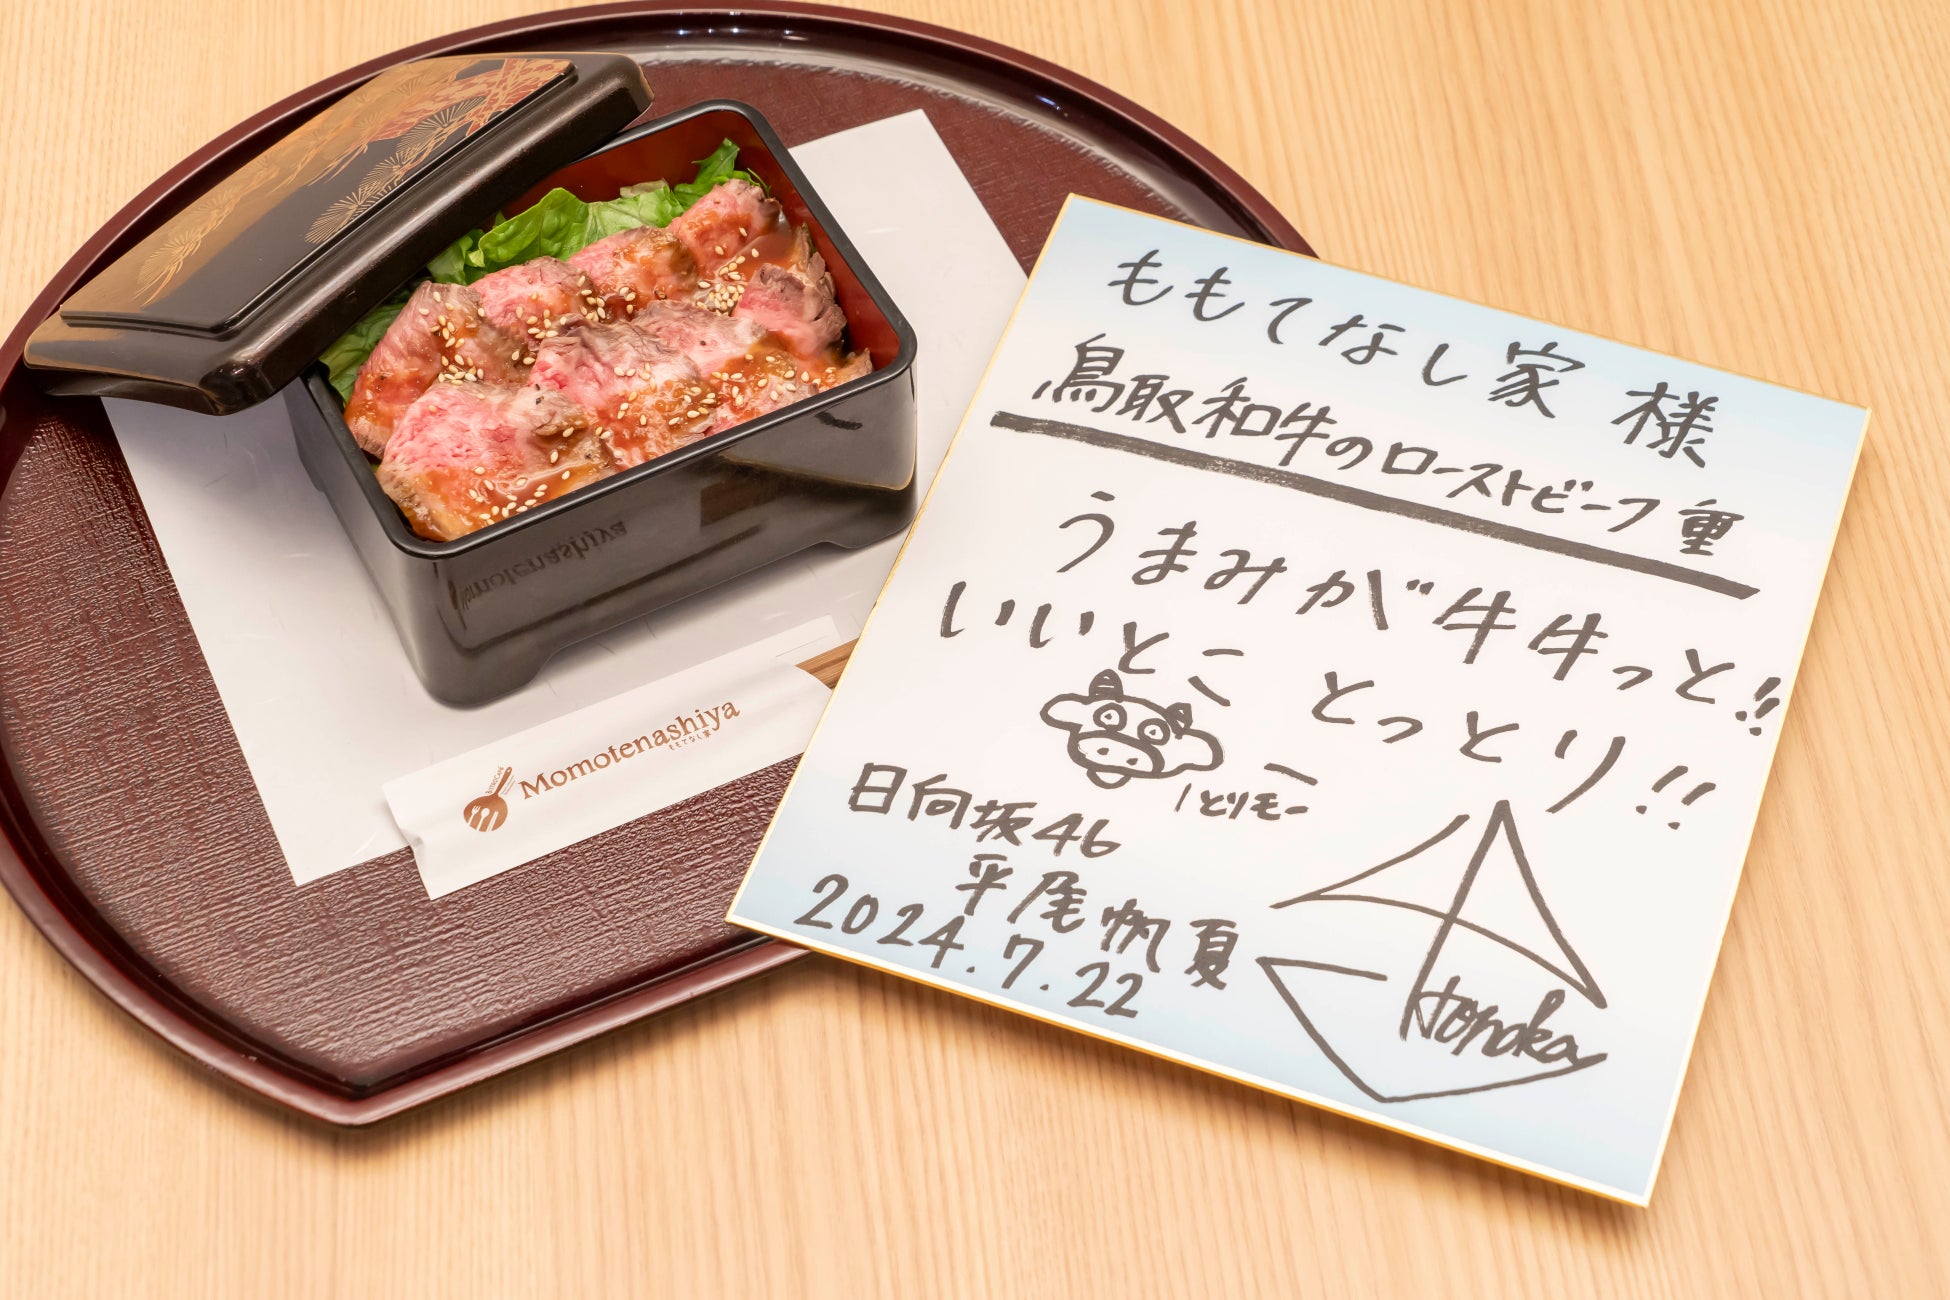 ももてなし家 様
鳥取和牛のローストビーフ重
うまみが牛牛っと!!
いいとことっとり!!
とりモー
日向坂46
平尾帆夏
2024.7.22
Honoka
Momotenashiya
ももてなし家